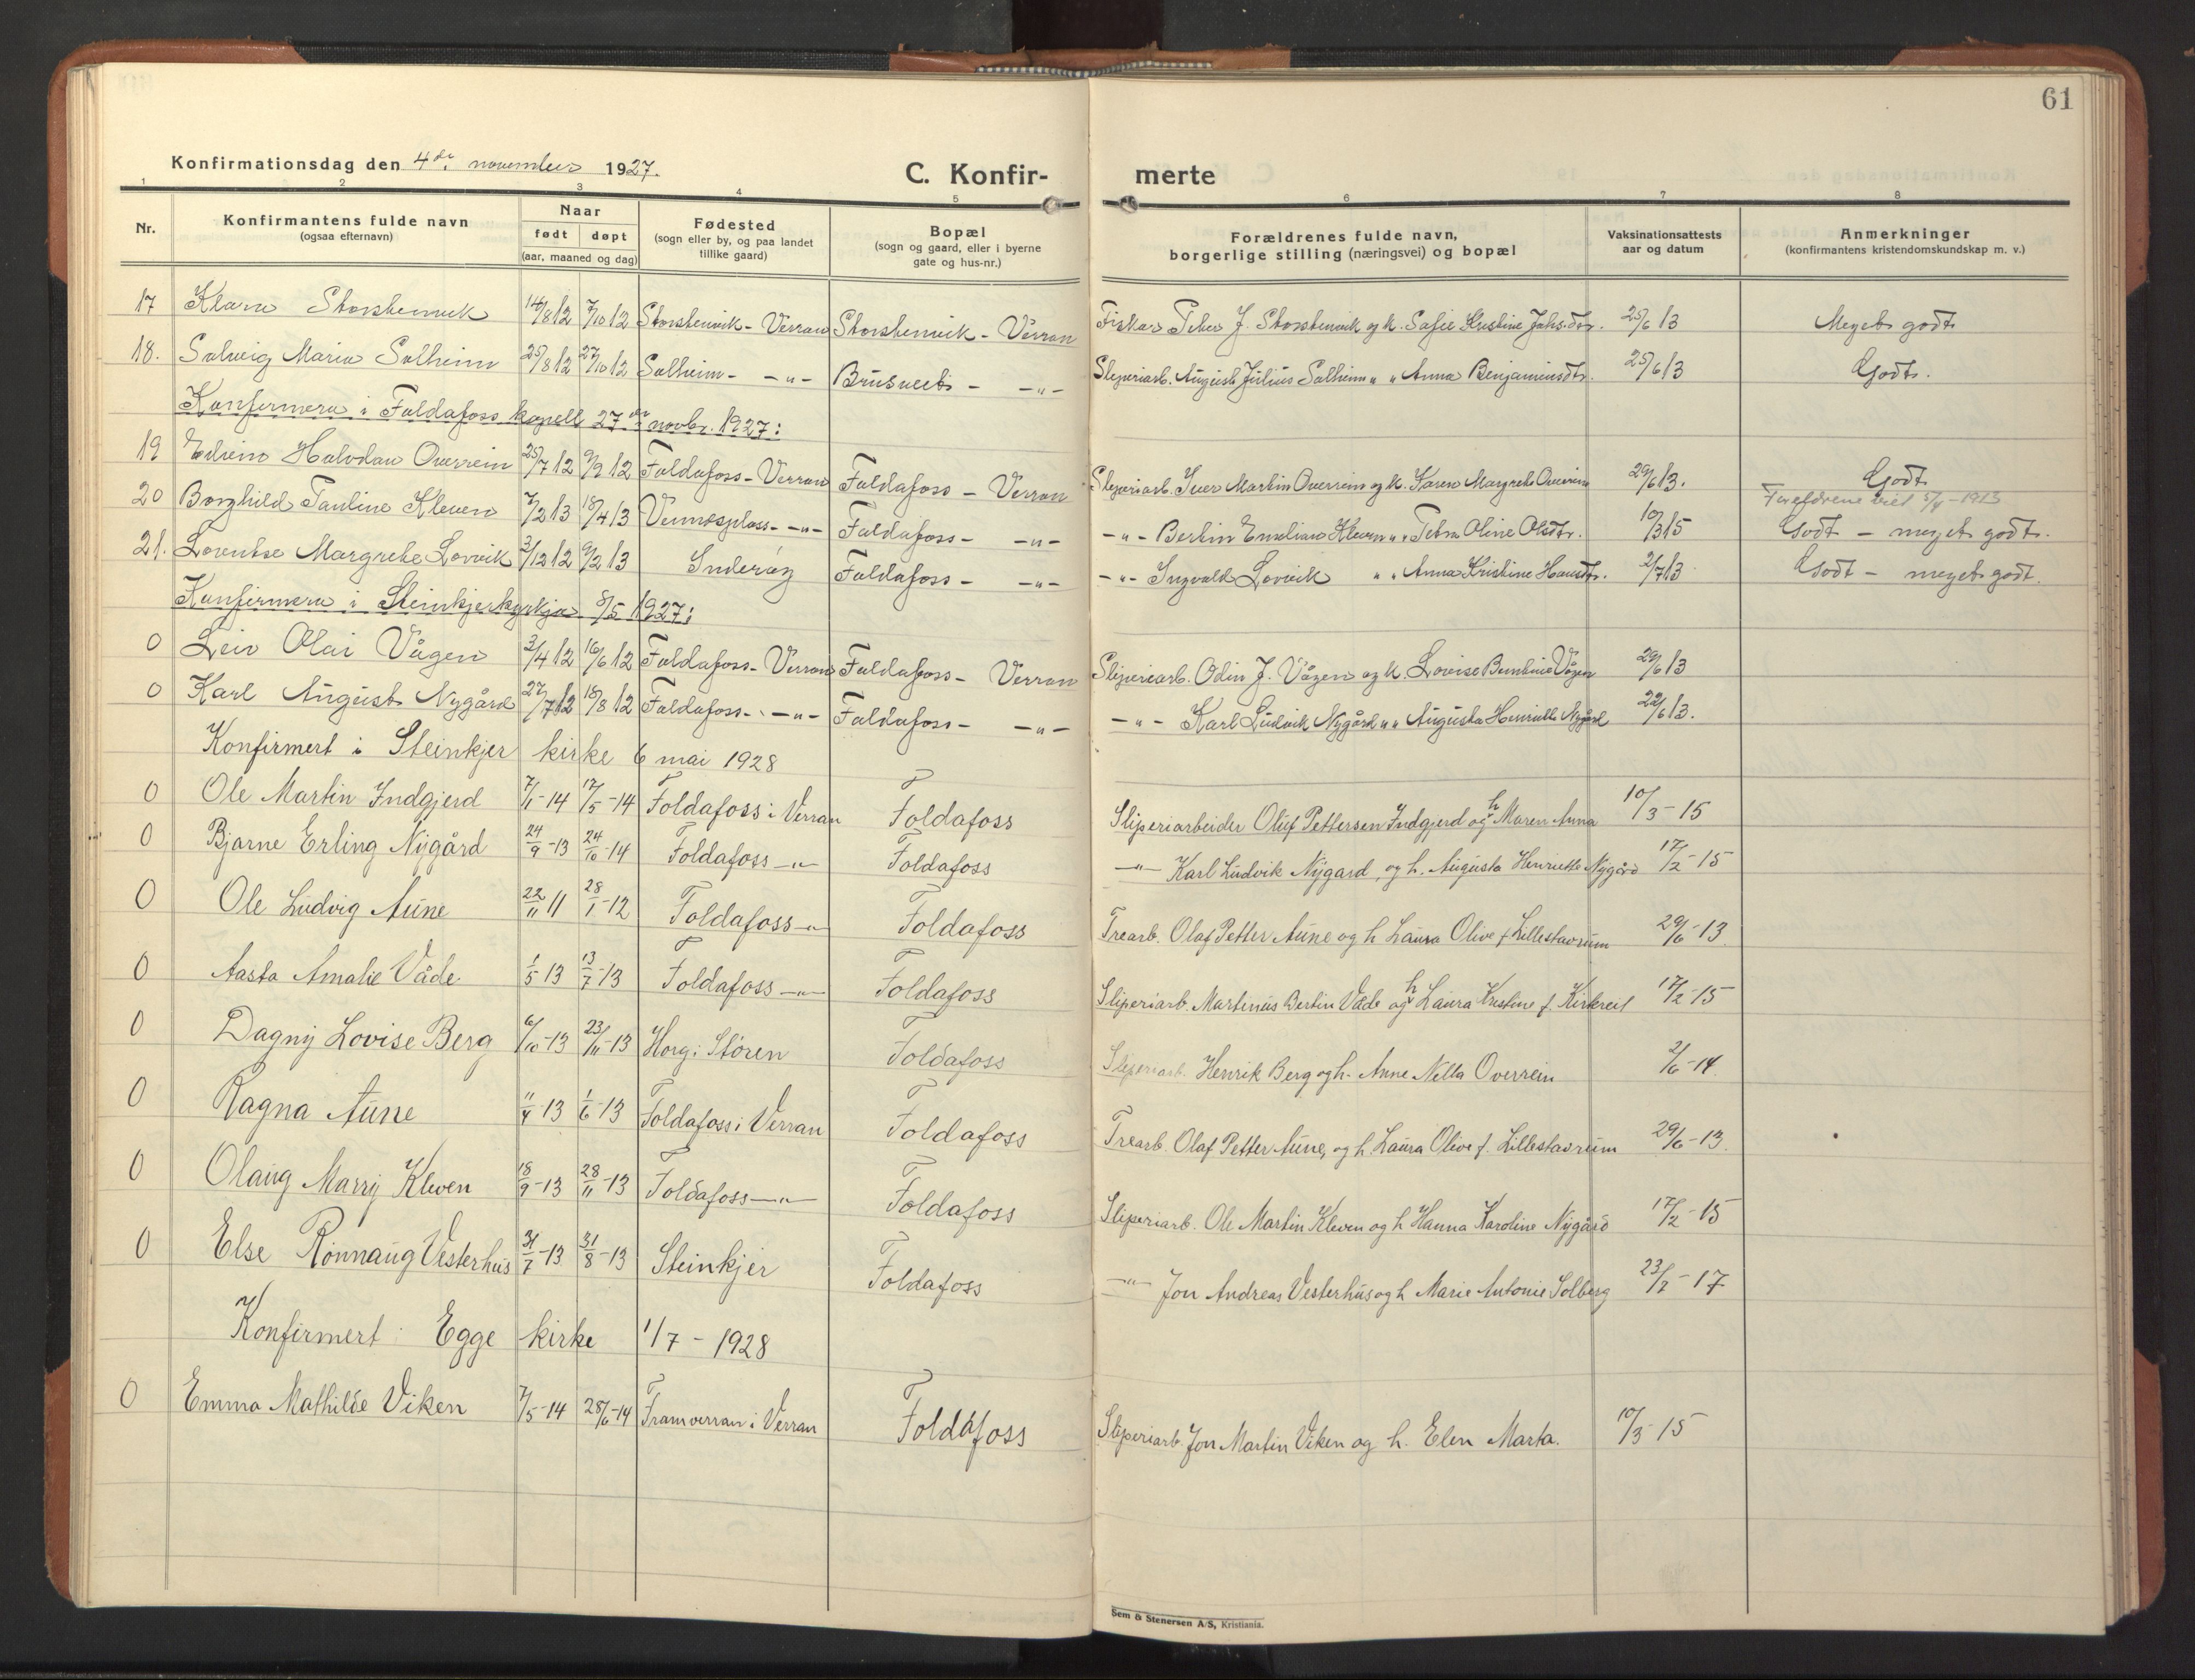 61
Konfirmationsdag den 4de november 1927.
C. Konfir-
merte
1 2 3 4 5 6 7 8
Nr. Konfirmantens fulde navn (ogsaa efternavn) Naar født døpt (aar, maaned og dag) Fødested (sogn eller by, og paa landet tillike gaard) Bopæl (sogn og gaard, eller i byerne gate og hus-nr.) Forældrenes fulde navn, borgerlige stilling (næringsvei) og bopæl Vaksinationsattests aar og datum Anmerkninger (konfirmantens kristendomskundskap m. v.)
17 Klara Storstenvik 14/8 12 7/10 12 Storstenvik - Verran Storstenvik - Verran Fisker Peter J. Storstenvik og k. Sofie Kristine Johsdtr. 25/6 13 Meget godt
18. Solveig Marie Solheim 25/8 12 27/10 12 Solheim - -"- Brusveet - -"- Sliperiarb. August Julius Solheim " " Anna Benjaminsdtr. 25/6 13 Godt.
Konfirmera i Foldafoss kapell 27de novbr. 1927:
19 Edvin Halvdan Overrein 25/7 12 9/9 12 Foldafoss - Verran Foldafoss - Verran Sliperiarb. Iver Martin Overrein og k. Karen Margrete Overrein 29/6 13. Godt
20 Borghild Pauline Kleven 7/2 13 18/4 13 Vennesplass - -"- Foldafoss - -"- -"- Bertin Emilian Kleven " " Petra Oline Olsdtr. 10/3 15 Foreldrene viet 5/4-1913 Godt - meget godt.
21. Lorentse Margrete Lorvik 3/12 12 9/2 13 Inderøy Foldafoss - -"- -"- Ingvald Lorvik " " Anna Kristine Hansdtr. 2/7 13 Godt - meget godt.
Konfirmera i Steinkjerkyrkja 8/5 1927:
0 Leiv Olai Vågen 3/4 12 16/6 12 Foldafoss - Verran Foldafoss - Verran Sliperiarb. Odin J. Vågen og k. Lovise Berntine Vågen 29/6 13
0 Karl August Nygård 27/7 12 18/8 12 Foldafoss - -"- Foldafoss - -"- -"- Karl Ludvik Nygård " " Augusta Henriette Nygård 29/6 13.
Konfirmert i Steinkjer kirke 6 mai 1928
0 Ole Martin Indgjerd 7/1-14 17/5-14 Foldafoss i Verran Foldafoss Sliperiarbeider Oluf Pettersen Indgjerd og h Maren Anna 10/3-15
0 Bjarne Erling Nygård 24/9-13 24/10-14 Foldafoss -"- Foldafoss -"- Karl Ludvik Nygard, og h. Augusta Henriette Nygård 17/2-15
0 Ole Ludvig Aune 22/11 11 28/1-12 Foldafoss -"- Foldafoss Trearb. Olaf Petter Aune og h Laura Olive f Lillestavrum 29/6-13
0 Aasta Amalie Våde 1/5 13 13/7-13 Foldafoss -"- Foldafoss Sliperiarb. Martinus Bertin Våde og h Laura Kristine f. Kirkreit 17/2-15
0 Dagny Lovise Berg 6/10-13 23/11-13 Horg i Støren Foldafoss Sliperiarb. Henrik Berg og h. Anne Nella Overrein 2/6-14
0 Ragna Aune 11/4-13 1/6-13 Foldafoss i Verran Foldafoss Trearb. Olaf Petter Aune, og h. Laura Olive f. Lillestavrum 29/6-13
0 Olaug Marry Kleven 18/9-13 28/11-13 Foldafoss -"- Foldafoss Sliperiarb. Ole Martin Kleven og h Hanna Karoline Nygård 17/2-15
0 Else Rønnaug Vesterhus 31/7-13 31/8-13 Steinkjer Foldafoss -"- Jon Andreas Vesterhus og h Marie Antonie Solberg 23/2-17
Konfirmert i Egge kirke 1/7-1928
0 Emma Mathilde Viken 7/5-14 28/6-14 Framverran i Verran Foldafoss Sliperiarb. Jon Martin Viken og h. Elen Marta. 10/3-15
Sem & Stenersen A/S, Kristiania.